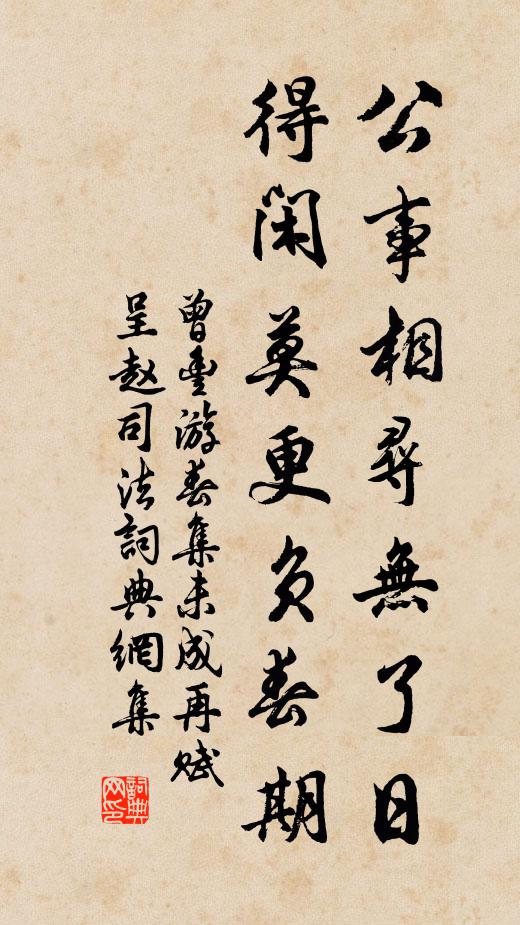 公事相尋無了日
得閑莫更负春期
曾豐游春集未成再赋
呈赵司法詞典網集
詞典网印